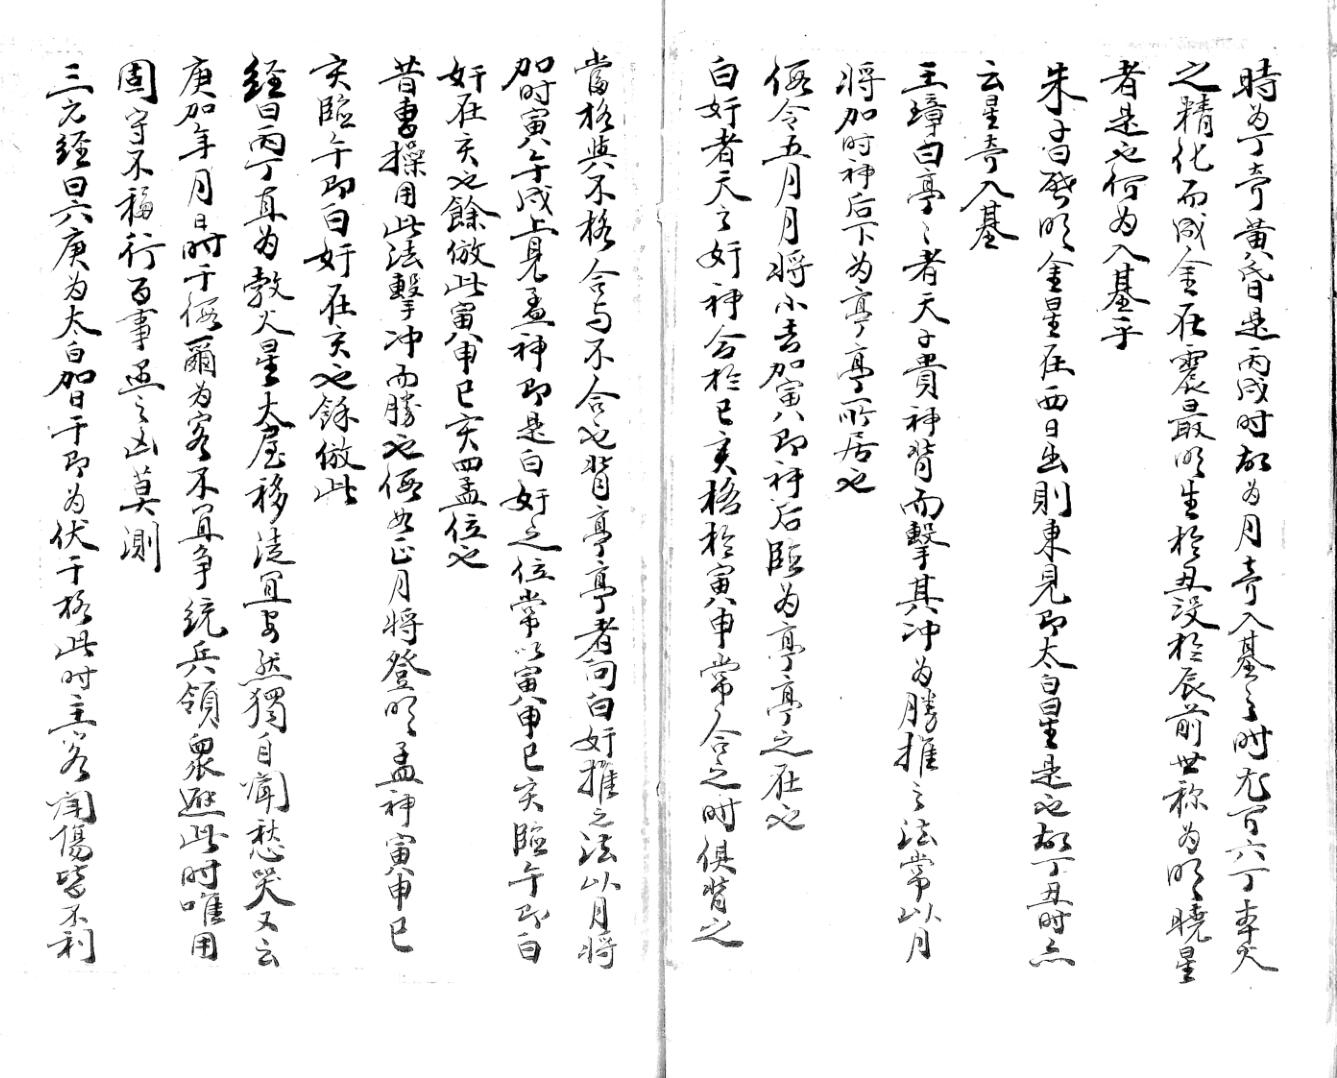 時为丁奇黄昏是丙戌时故为月奇入墓之时尤言六丁本火
之精化而成金在震最明生於丑没於辰前世称为明曉星
者是也何为入墓乎
朱子曰啓明金星在西日出則東見即太白星是也故丁丑时亦
云星奇入墓
王璋曰亭亭者天子貴神背而擊其冲为勝推之法常以月
将加时神后下为亭亭所居也
假令五月月将小吉加寅八即神后臨为亭亭之在也
白奸者天之奸神合於巳亥格於寅申常合之时俱背之
當格與不格合与不合也背亭亭者向白奸推之法以月将
加时寅午戌上見孟神即是白奸之位常以寅申巳亥臨午即白
奸在亥也餘倣此寅申巳亥四孟位也
昔曹操用此法擊冲而勝也假如正月将登明孟神寅申巳
亥臨午即白奸在亥也餘倣此
經曰丙丁直为勃火星大屋移流宜安然獨自閙愁哭又云
庚加年月日时干假爾为客不宜争統兵領衆避此时唯用
固守不移行百事遇之凶莫測
三元經曰六庚为太白加日干即为伏干格此时主客闘傷皆不利